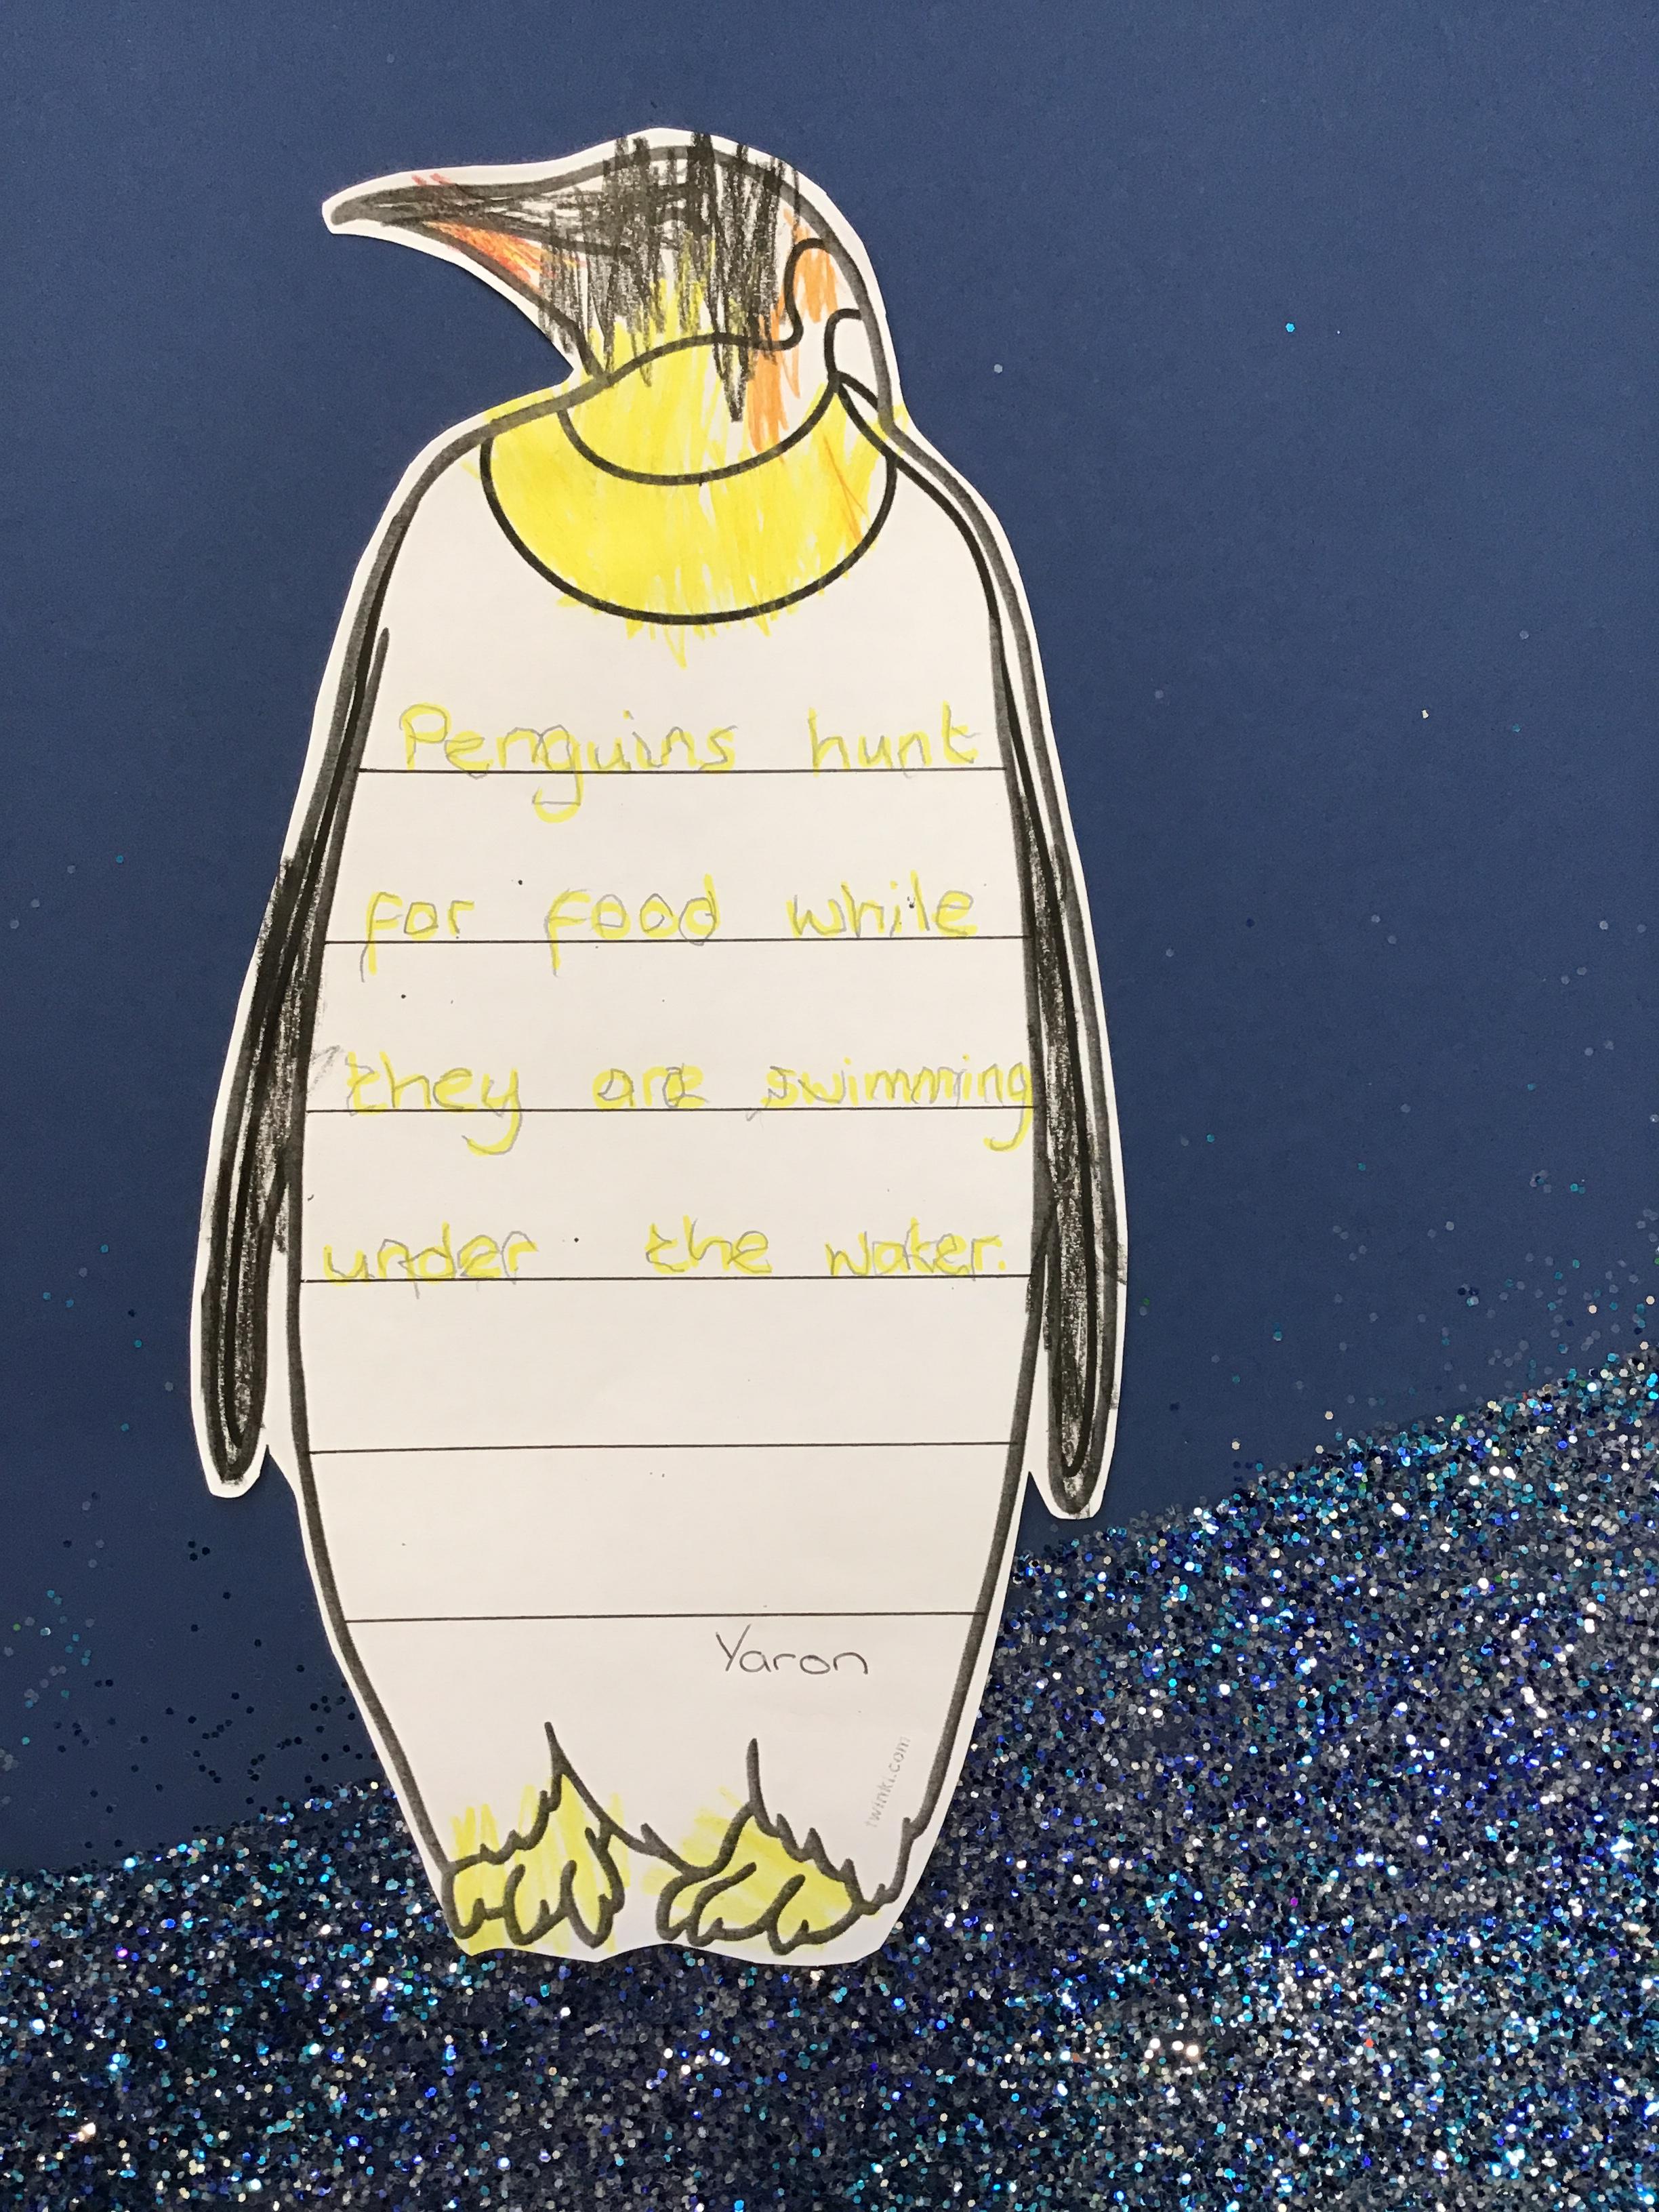 Penguins hunt
for food while
they are swimming
under the water.
Yaron
twinkl.com